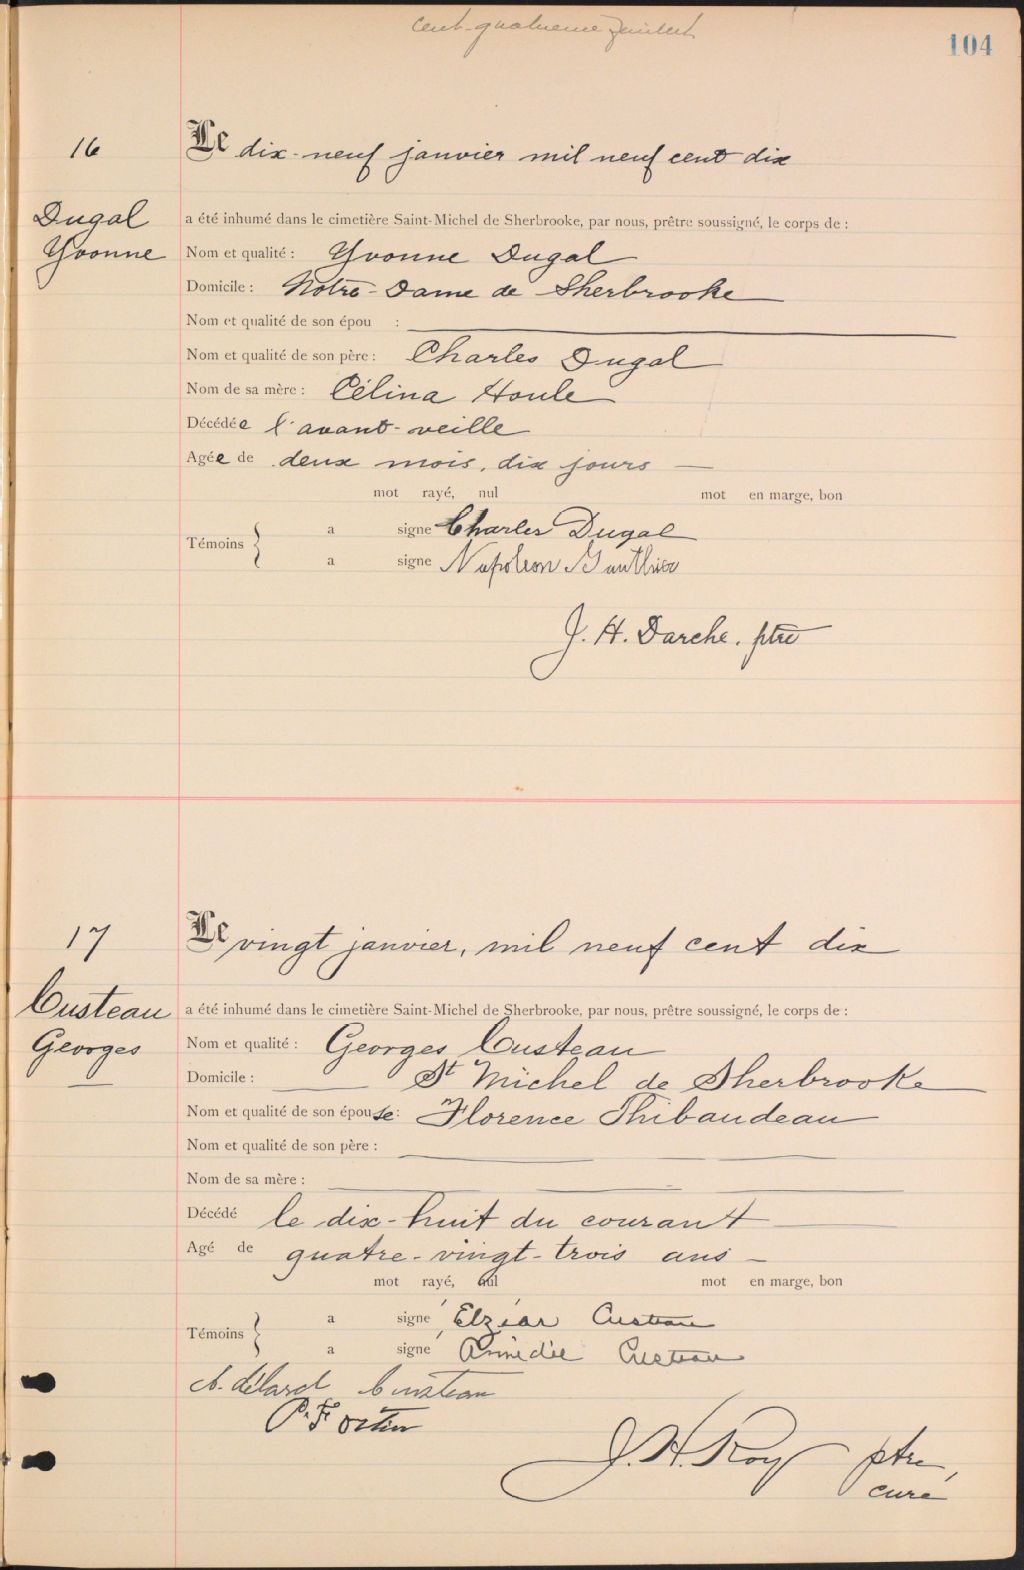 cent-quatrième feuillet
104
16
Le dix-neuf janvier mil neuf cent dix
Dugal
Yvonne
a été inhumé dans le cimetière Saint-Michel de Sherbrooke, par nous, prêtre soussigné, le corps de :
Nom et qualité : Yvonne Dugal
Domicile : Notre-Dame de Sherbrooke
Nom et qualité de son épou :
Nom et qualité de son père : Charles Dugal
Nom de sa mère : Célina Houle
Décédée l'avant-veille
Agée de deux mois, dix jours
mot rayé, nul mot en marge, bon
Témoins { a signé Charles Dugal
a signé Napoleon Gauthier
J. H. Darche, ptre
17
Le vingt janvier, mil neuf cent dix
Custeau
Georges
a été inhumé dans le cimetière Saint-Michel de Sherbrooke, par nous, prêtre soussigné, le corps de :
Nom et qualité : Georges Custeau
Domicile : St Michel de Sherbrooke
Nom et qualité de son épouse : Florence Thibaudeau
Nom et qualité de son père :
Nom de sa mère :
Décédé le dix-huit du courant
Agé de quatre-vingt-trois ans
mot rayé, nul mot en marge, bon
Témoins { a signé Elzéar Custeau
a signé Amédée Custeau
Custeau
P. Fortin
J. H. Roy ptre,
curé